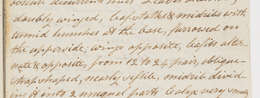 doubly winged, leafstalks & midribs with
tumid bunches at the base, furrowed on
the upperside, wings opposite, leafits alter-
nate & opposite from 12 to 24 pair, oblique-
strap shaped, nearly sessile, midrib divid
in it into 2 unequal parts